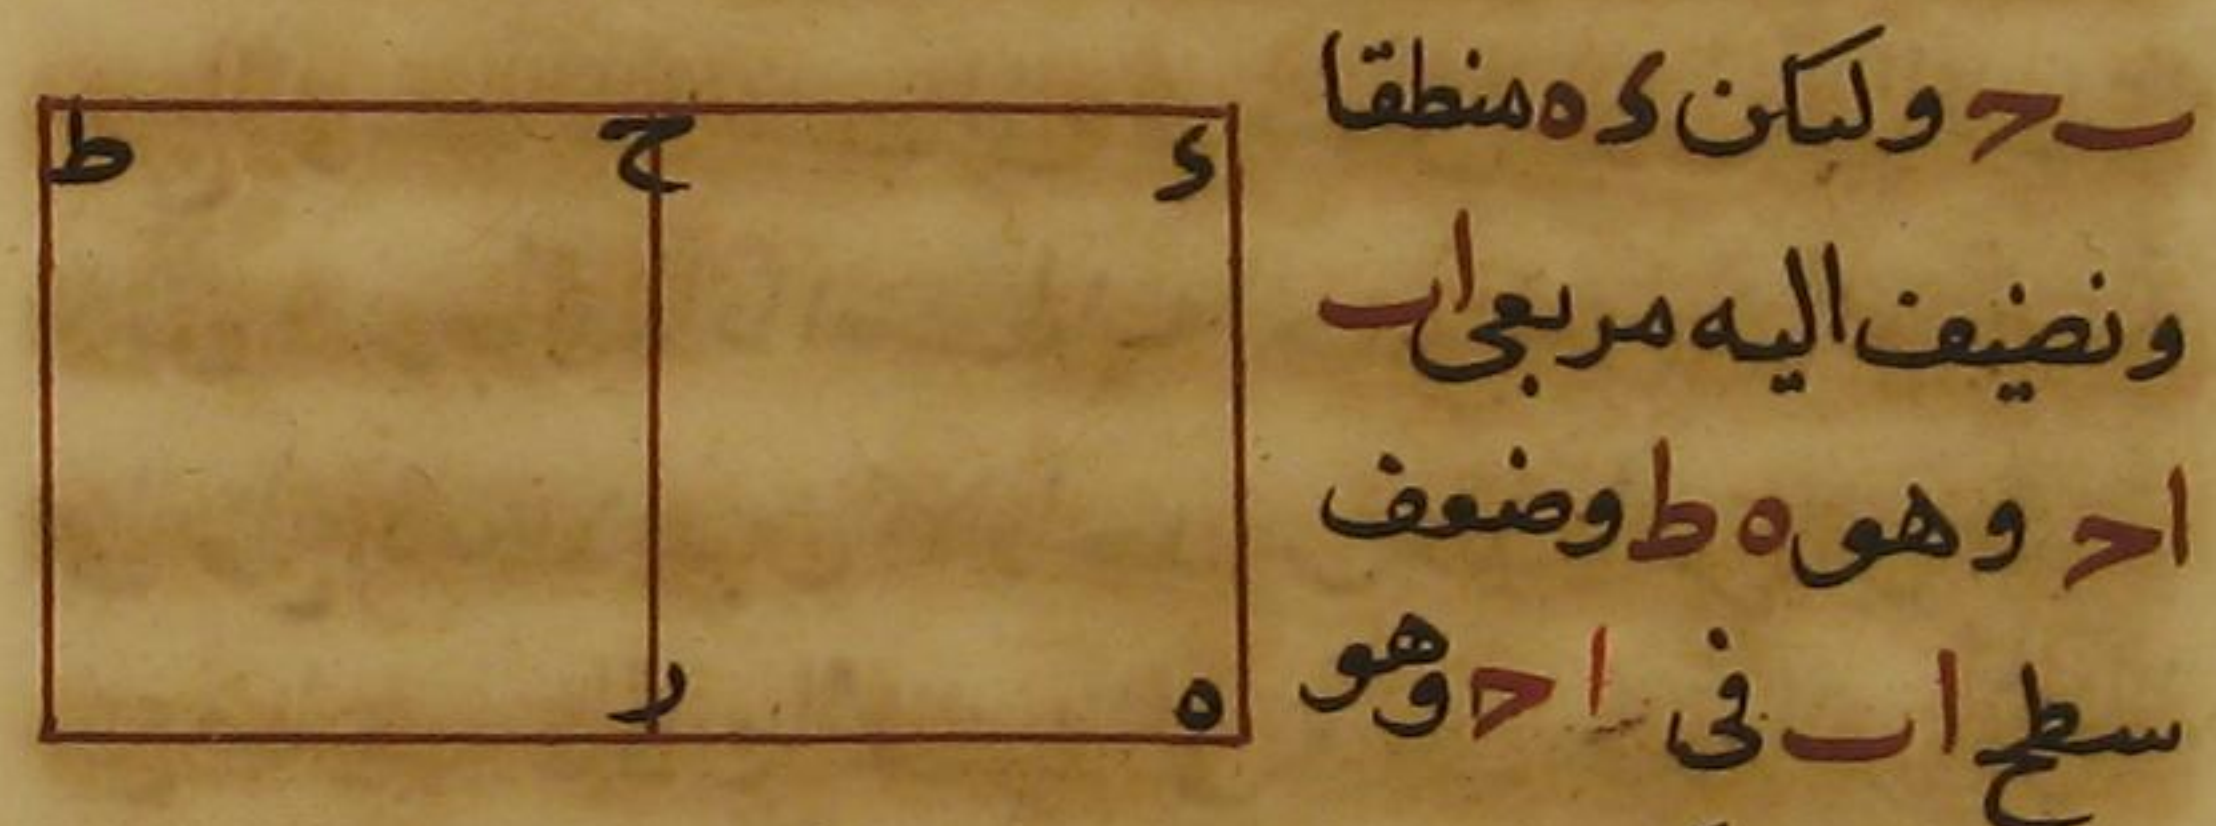 ب ح وليكن د ه منطقا
ونضيف اليه مربعى اب
اح وهو ه ط وضعف
سطح اب فى اح وهو
ط ح د
ر ه